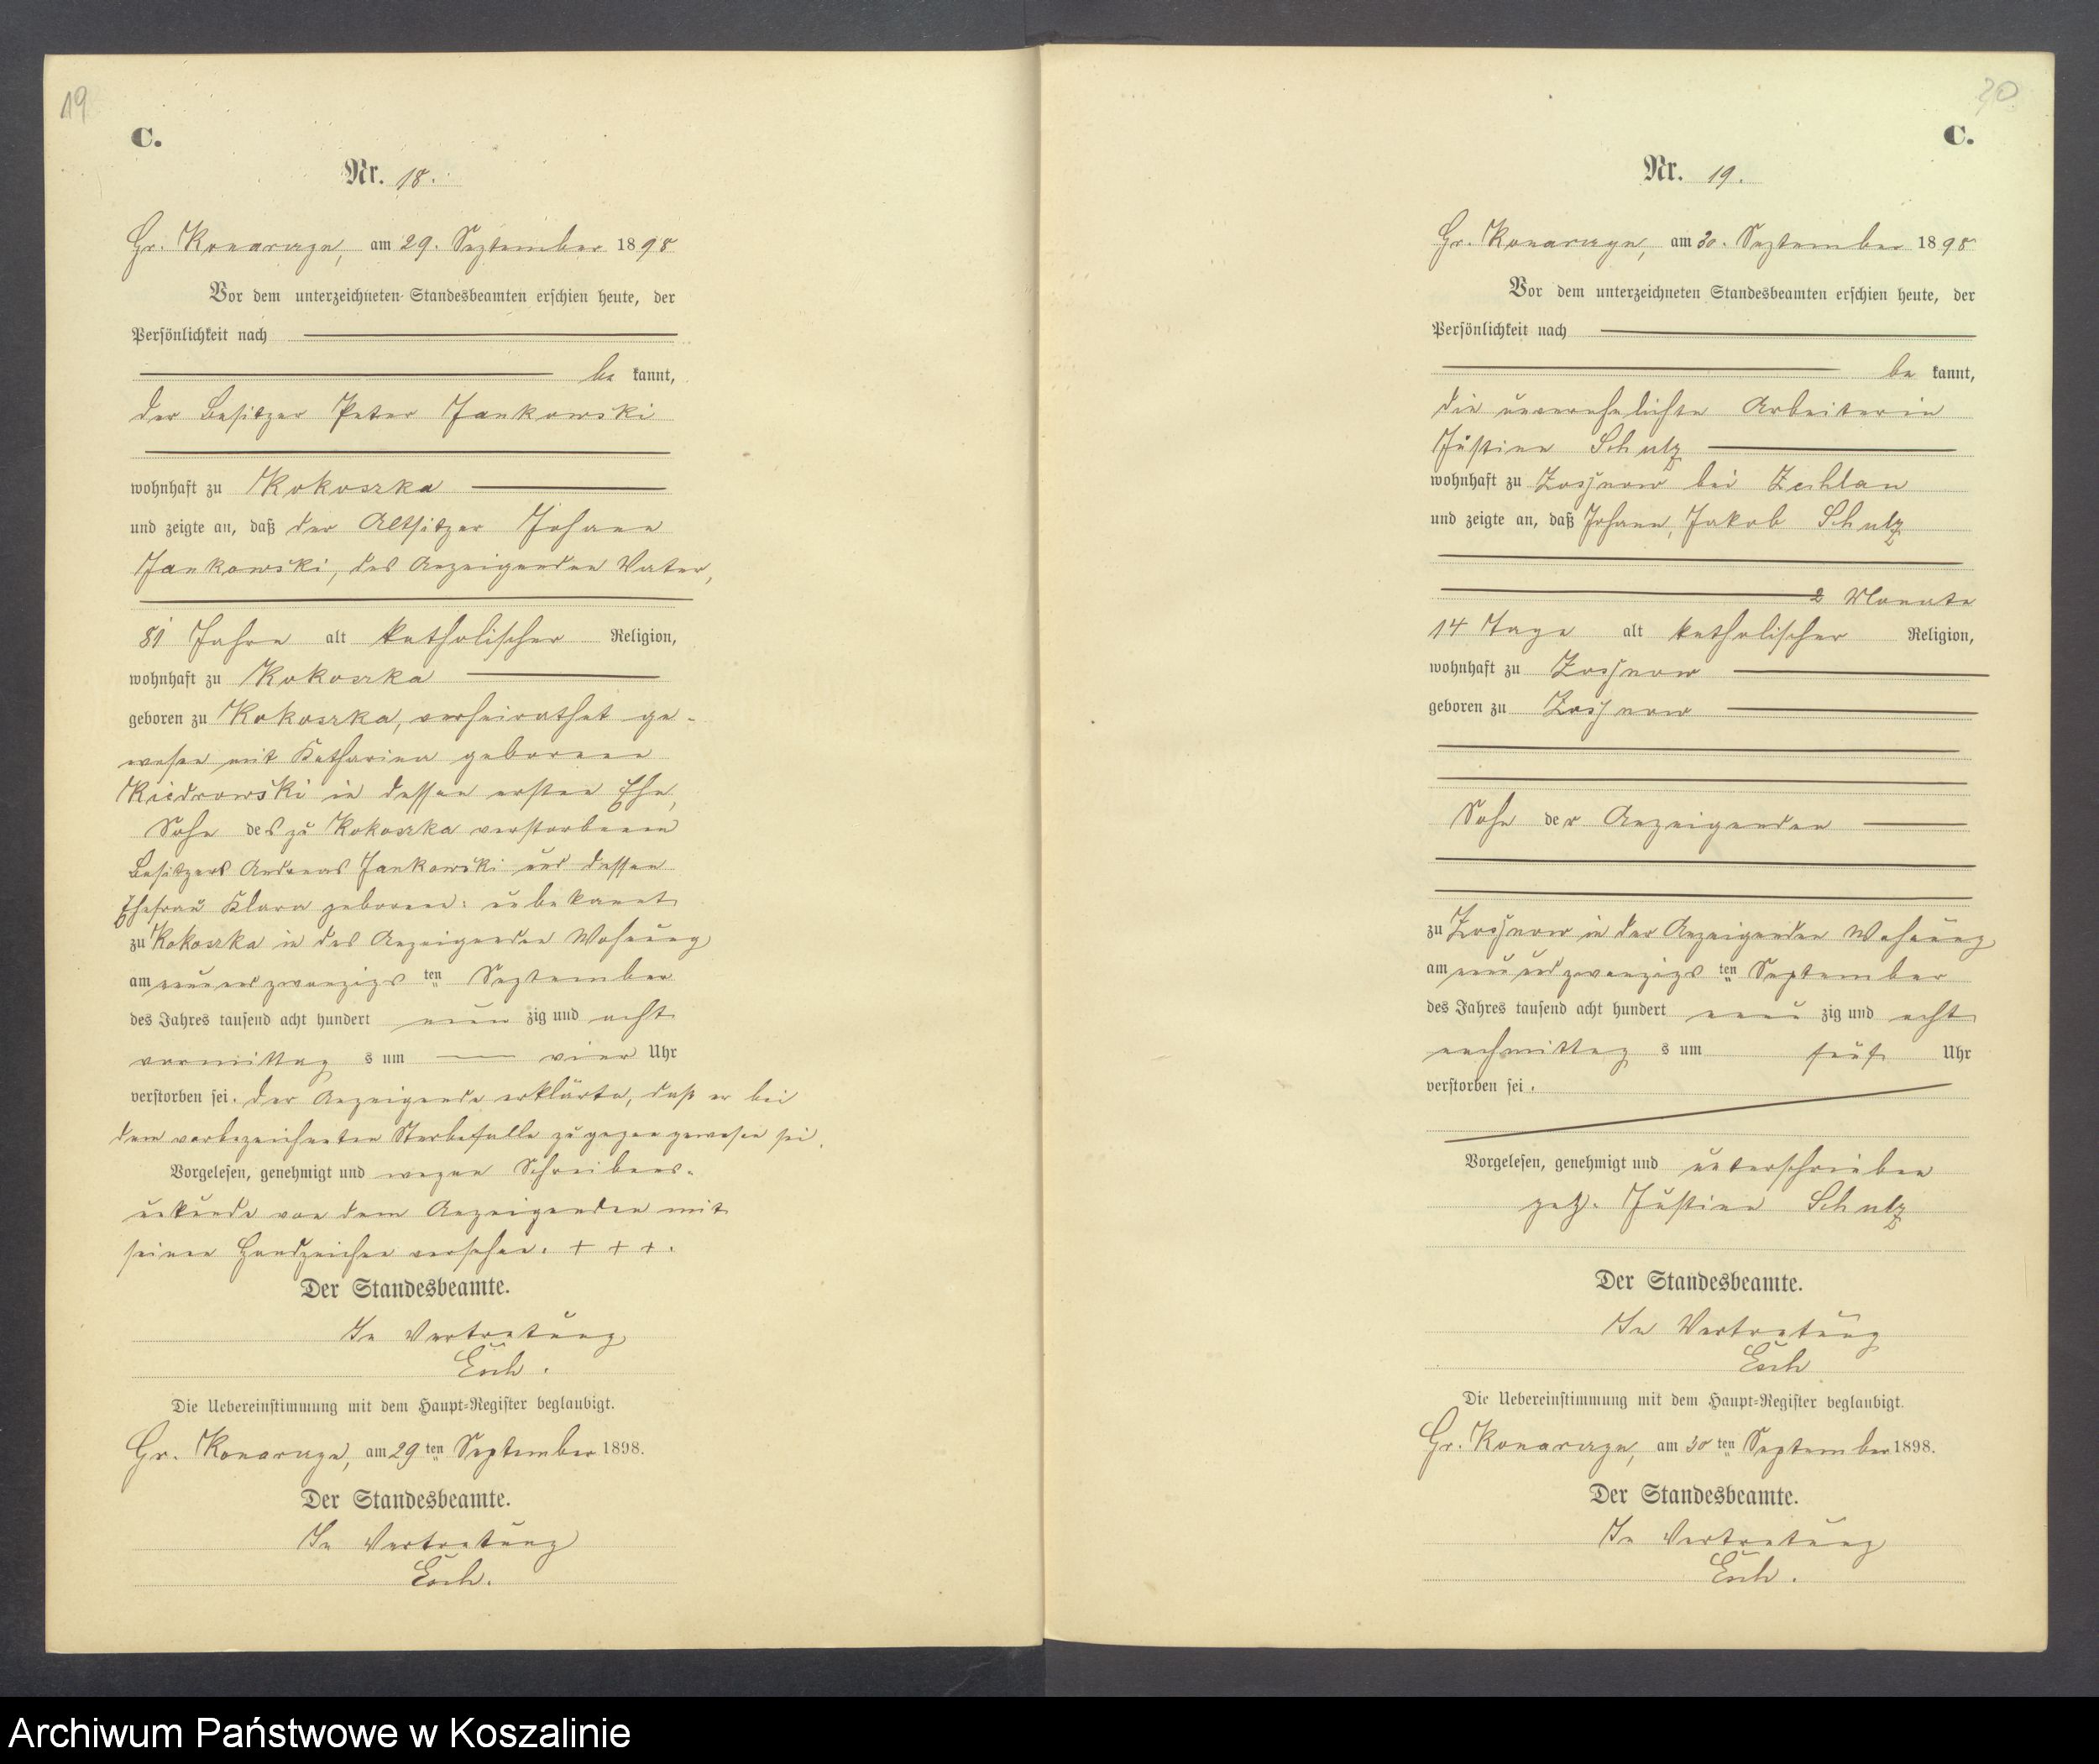 19
C.
Nr. 18.
Gr. Konarczyn, am 29. September 1898
Vor dem unterzeichneten Standesbeamten erschien heute, der
Persönlichkeit nach
be kannt,
der Besitzer Peter Jankowski
wohnhaft zu Kokoszka
und zeigte an, daß der Altsitzer Johann
Jankowski, des Anzeigenden Vater,
81 Jahre alt katholischer Religion,
wohnhaft zu Kokoszka
geboren zu Kokoszka, verheirathet ge-
wesen mit Katharina geborenen
Kiedrowski in dessen ersten Ehe,
Sohn des zu Kokoszka verstorbenen
Besitzers Andreas Jankowski und dessen
Ehefrau Klara geboren: unbekannt
zu Kokoszka in des Anzeigenden Wohnung
am neunundzwanzigs ten September
des Jahres tausend acht hundert neun zig und acht
vormittag s um vier Uhr
verstorben sei. Der Anzeigende erklärte, daß er bei
dem vorbezeichneten Sterbefalle zugegen gewesen sei.
Vorgelesen, genehmigt und wegen Schreibens-
unkunde von dem Anzeigenden mit
seinen Handzeichen versehen. + + +.
Der Standesbeamte.
In Vertretung
Esch.
Die Uebereinstimmung mit dem Haupt=Register beglaubigt.
Gr. Konarczyn, am 29 ten September 1898.
Der Standesbeamte.
In Vertretung
Esch.
20
C.
Nr. 19.
Gr. Konarczyn, am 30. September 1898
Vor dem unterzeichneten Standesbeamten erschien heute, der
Persönlichkeit nach
be kannt,
die unverehelichte Arbeiterin
Justine Schulz
wohnhaft zu Zossnow bei Zechlau
und zeigte an, daß Johann, Jakob Schulz
2 Monate
14 Tage alt katholischer Religion,
wohnhaft zu Zossnow
geboren zu Zossnow
Sohn der Anzeigenden
zu Zossnow in der Anzeigenden Wohnung
am neunundzwanzigs ten September
des Jahres tausend acht hundert neun zig und acht
nachmittag s um fünf Uhr
verstorben sei.
Vorgelesen, genehmigt und unterschrieben
gez. Justine Schulz
Der Standesbeamte.
In Vertretung
Esch
Die Uebereinstimmung mit dem Haupt=Register beglaubigt.
Gr. Konarczyn, am 30 ten September 1898.
Der Standesbeamte.
In Vertretung
Esch.
Archiwum Państwowe w Koszalinie